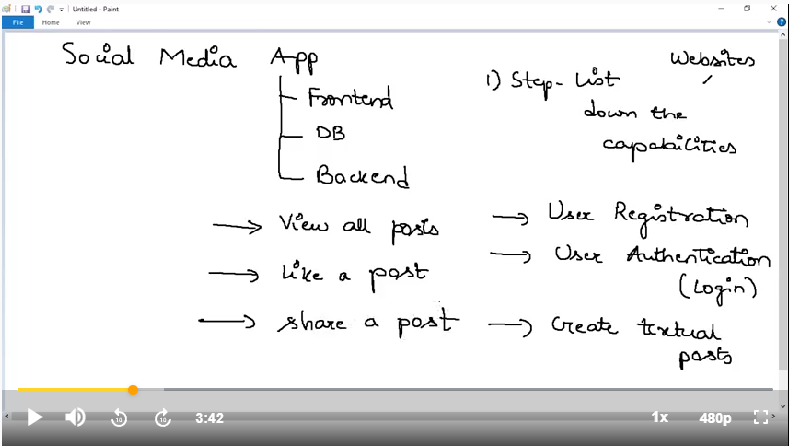 Untitled - Paint
File Home View
Social Media App
Frontend
DB
Backend
Websites
1) Step - List
down the
capabilities
View all posts
Like a post
share a post
User Registration
User Authentication
(Login)
Create textual
posts
10 10 3:42 1x 480p